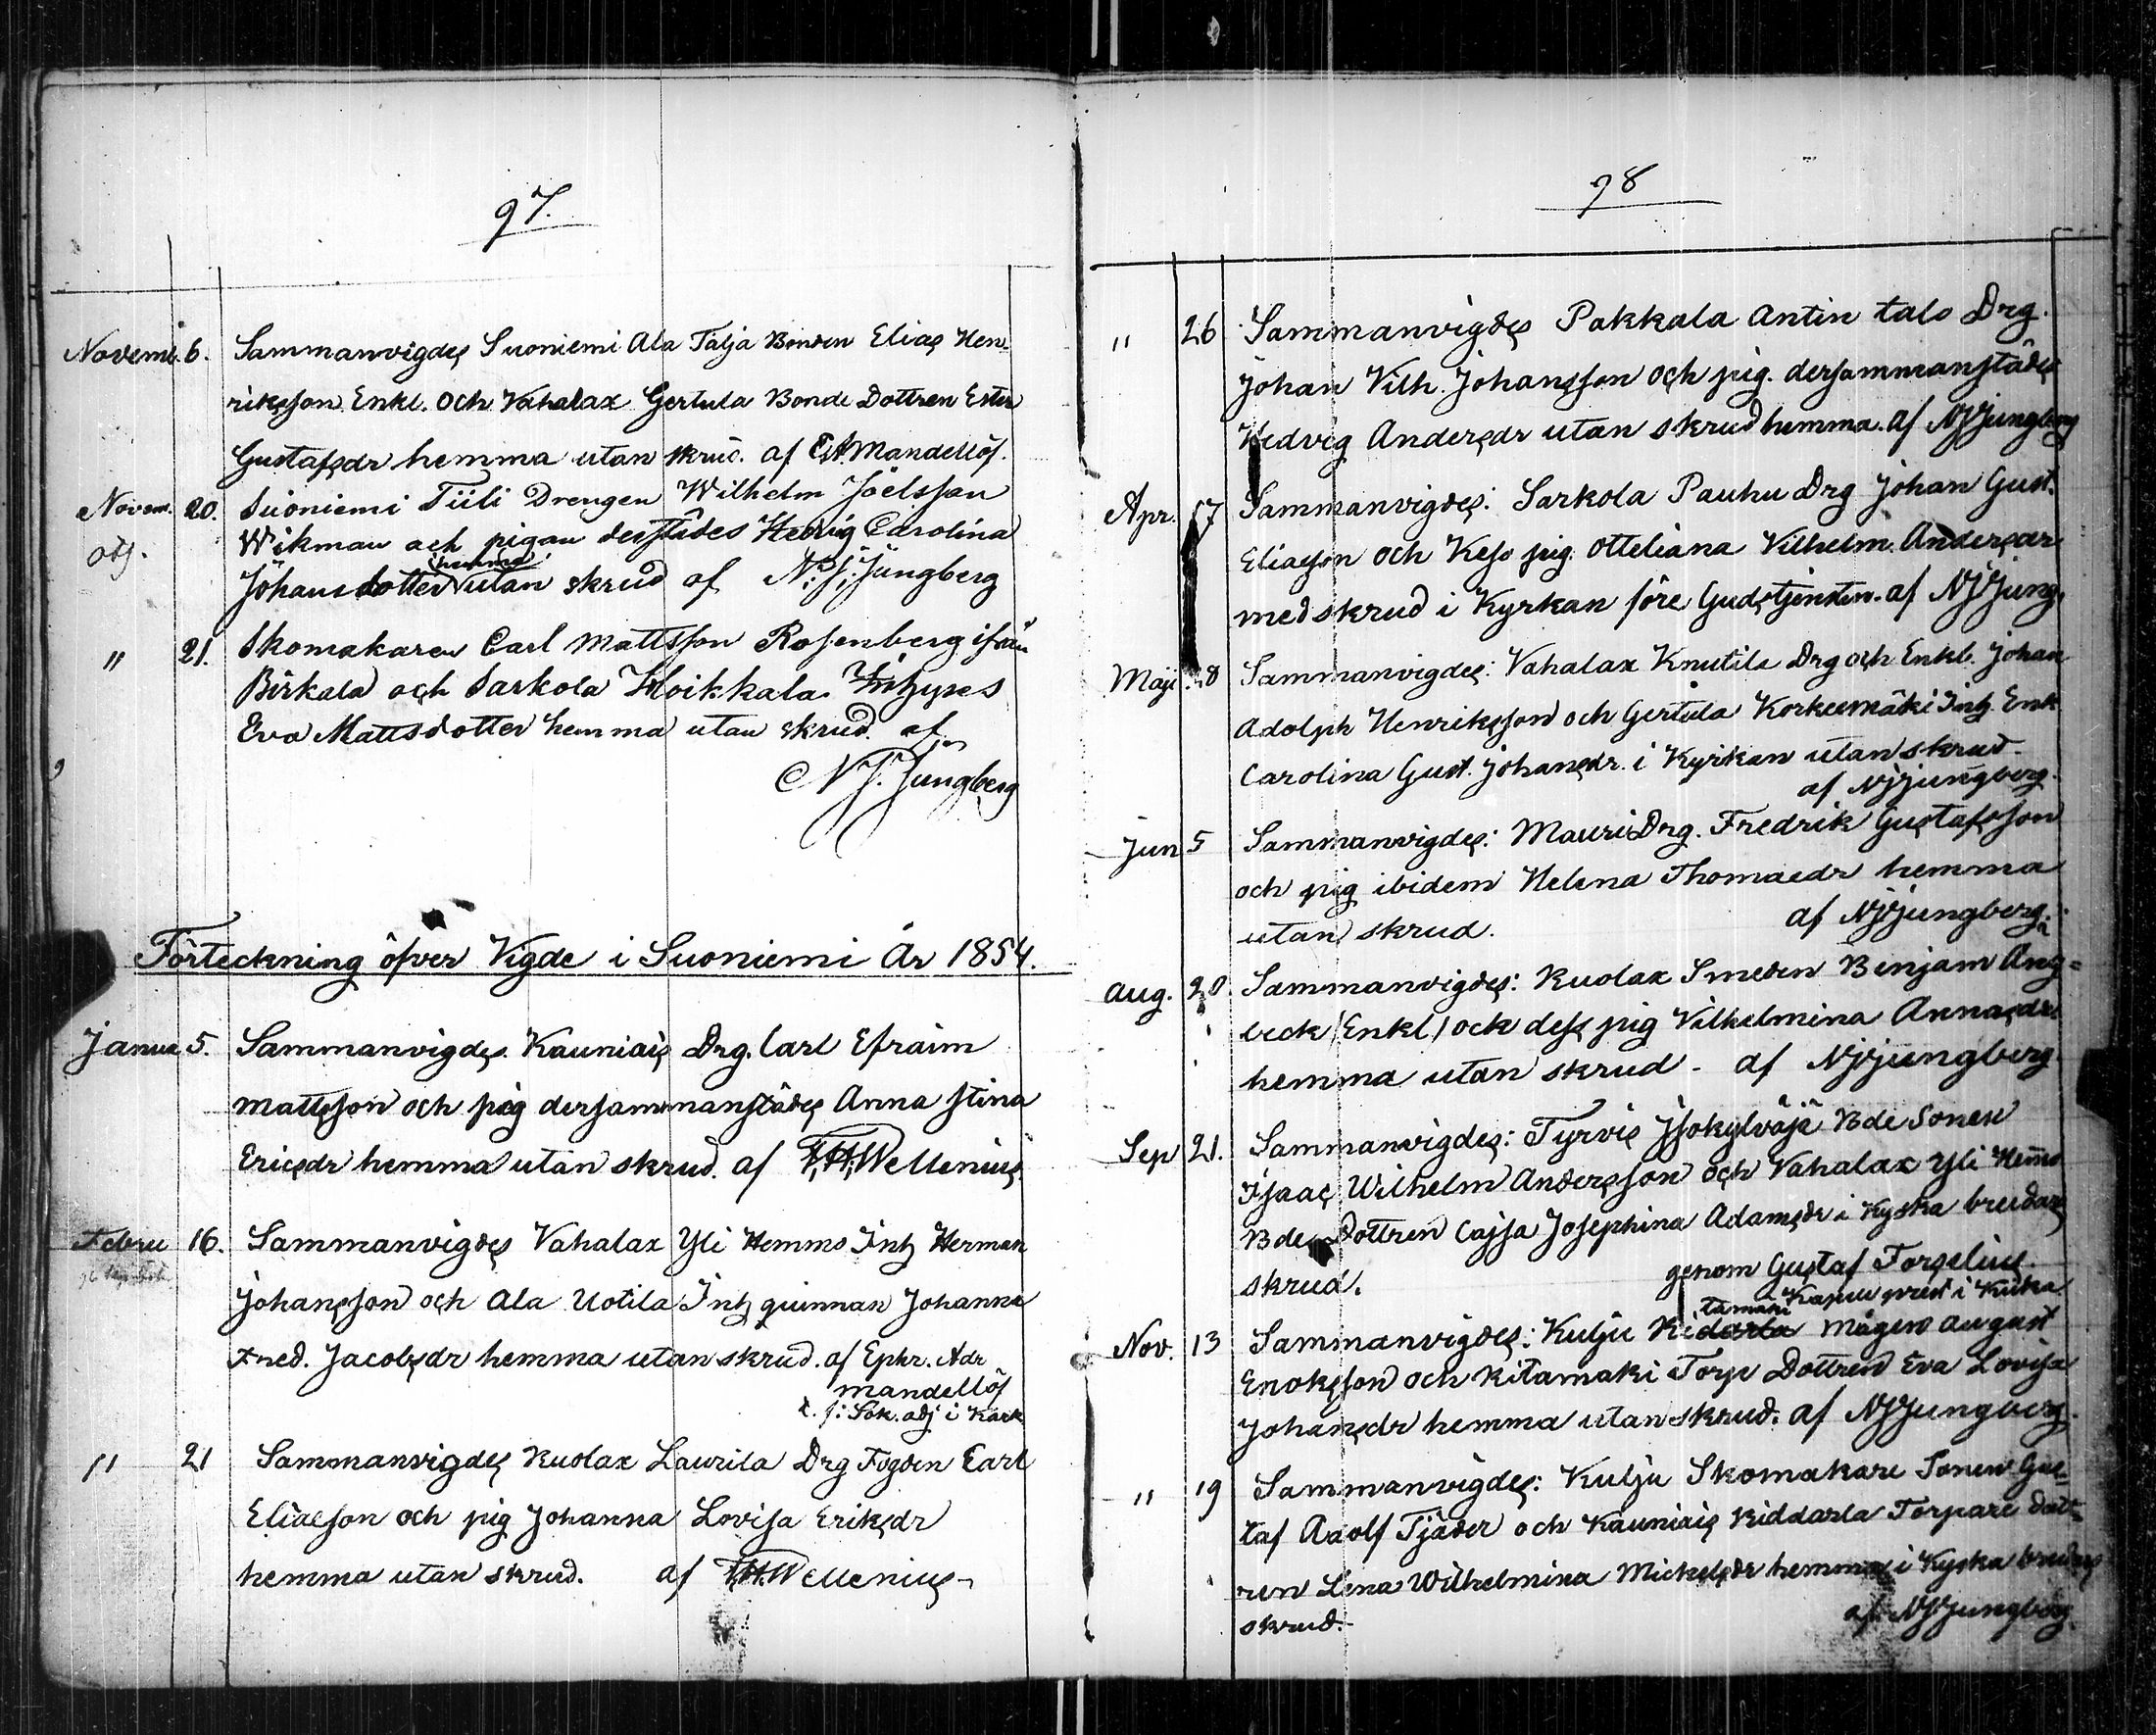 97.
Novemb. 6. Sammanvigdes Suoniemi Ala Tälja Bonden Elias Hen-
riksson Enkl. och Vahalax Gertula Bonde Dottren Ester
Gustafsdr hemma utan skrud. af E.A. Mandellöf.
Novem. 20. Suoniemi Tiili Drengen Wilhelm Joelsson
Wikman och pigan derstädes Hedvig Carolina
hemma
Johansdotter utan skrud af N: J: Jungberg
" 21. Skomakaren Carl Mattsson Rosenberg ifrån
Birkala och Sarkola Hoikkala Inhyses
Eva Mattsdotter hemma utan skrud. af
N J. Jungberg
Förteckning öfver Vigde i Suoniemi År 1854.
Janua 5. Sammanvigdes Kauniais Drg. Carl Efraim
Mattsson och pig dersammanstädes Anna Stina
Ericsdr hemma utan skrud. af F.H. Wellenius.
Febru 16. Sammanvigdes Vahalax Yli Hemmo Inh Herman
Johansson och Ala Uotila Inh quinnan Johanna
Fred. Jacobsdr hemma utan skrud. af Ephr. Adr
Mandellöf
t. f: Sok. adj i Kark
" 21 Sammanvigdes Kuolax Laurila Drg Fogden Carl
Eliasson och pig Johanna Lovisa Eriksdr
hemma utan skrud. af F.H. Wellenius
98
" 26 Sammanvigdes Pakkala Antin talo Drg.
Johan Vilh. Johansson och pig. dersammanstädes
Hedvig Andersdr utan skrud hemma. af NJJungberg
Apr. 17 Sammanvigdes: Sarkola Pauhu Drg Johan Gust.
Eliasson och Keso pig. Otteliana Vilhelm. Andersdr
med skrud i Kyrkan före Gudstjensten. af NJJung.
Maji 28 Sammanvigdes: Vahalax Knutila Drg och Enkl. Johan
Adolph Henriksson och Gertula Korkeemäki Inh. Enk
Carolina Gust. Johansdr. i Kyrkan utan skrud.
af NJJungberg.
Jun 5 Sammanvigdes: Mauri Drg. Fredrik Gustafsson
och pig ibidem Helena Thomasdr hemma
utan skrud. af NJJungberg.
Aug. 20 Sammanvigdes: Kuolax Smeden Benjam Ang-
beck /Enkl/ ock dess pig Vilhelmina Annasdr
hemma utan skrud - af NJJungberg.
Sep 21. Sammanvigdes: Tyrvis Isokylväjä Bde Sonen
Isaac Wilhelm Andersson och Vahalax Yli Hemmo
Bde Dottren Cajsa Josephina Adamsdr i Kyska brudars
skrud. genom Gustaf Forselius.
Kapell prest i Kiika
tamaki
Nov. 13 Sammanvigdes: Kulju Kidarla mågen August
Enoksson och Kitamaki Torp Dottren Eva Lovisa
Johansdr hemma utan skrud. af NJJungberg.
" 19 Sammanvigdes: Kulju Skomakare Sonen Gus-
taf Adolf Tjäder och Kauniais Kiddarla Torpare Dott-
ren Lena Wilhelmina Michelsdr hemma i Kyska brudars
skrud.-
af NJJungberg.